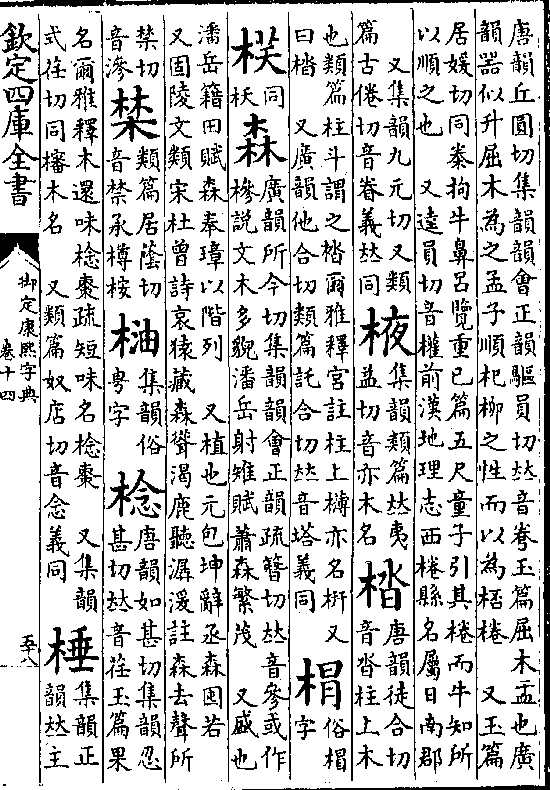 唐韻丘圓切集韻韻會正韻驅員切𠀤音弮玉篇屈木盂也廣
韻器似升屈木為之孟子順杞柳之性而以為桮棬　又玉篇
居媛切同桊拘牛鼻呂覽重已篇五尺童子引其棬而牛知所
以順之也　又逵員切音權前漢地理志西棬縣名屬日南郡
又集韻九元切又類
篇古倦切音眷義𠀤同
棭
集韻類篇𠀤夷
益切音亦木名
楷
唐韻徒合切
音沓柱上木
也類篇柱斗謂之楷爾雅釋宮註柱上欂亦名枅又
曰楷　又廣韻他合切類篇託合切𠀤音塔義同
㭻
俗楣
字
㭈
同
枖
森
廣韻所今切集韻韻會正韻疏簪切𠀤音參或作
槮說文木多貌潘岳射雉賦蕭森繁茂　又盛也
潘岳籍田賦森奉璋以階列　又植也元包坤辭丞森囿若
又固陵文類宋杜曾詩哀猿藏森聳渴鹿聽潺湲註森去聲所
禁切
音滲
棽
類篇居蔭切
音禁承樽桉
㮋
集韻俗
㽕字
棯
唐韻如甚切集韻忍
甚切𠀤音荏玉篇果
名爾雅釋木還味棯棗疏短味名棯棗　又集韻
式荏切同橣木名　又類篇奴店切音念義同
棰
集韻正
韻𠀤主
欽定四庫全書
御定康熙字典
卷十四